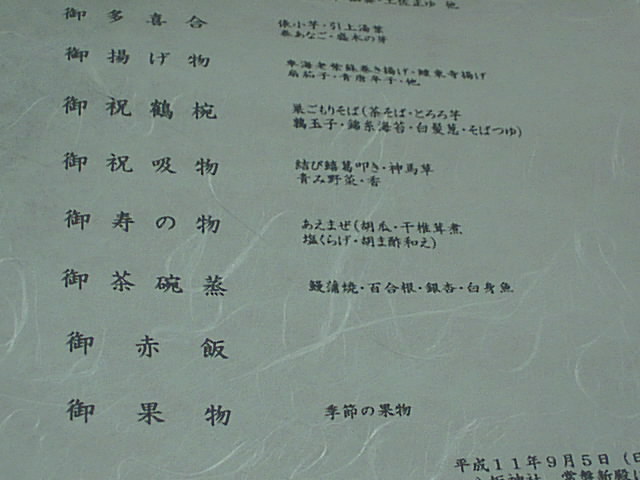 御多喜合
俵小芋・引上湯葉
御揚げ物
車海老紫蘇巻き揚げ・鱧東寺揚げ
扇茄子・青唐辛子・他
御祝鶴椀
巣ごもりそば(茶そば・とろろ芋
鶉玉子・錦糸海苔・白髪葱・そばつゆ)
御祝吸物
結び鱚葛叩き・神馬草
青み野菜・香
御寿の物
あえまぜ(胡瓜・干椎茸煮
塩くらげ・胡ま酢和え)
御茶碗蒸
鰻蒲焼・百合根・銀杏・白身魚
御赤飯
御果物
季節の果物
平成11年9月5日(日
坂神社 常盤新殿